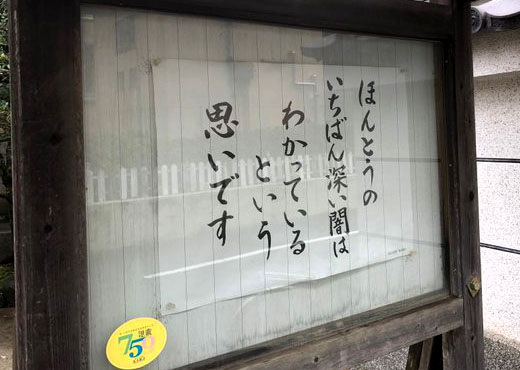 ほんとうの
いちばん深い闇は
わかっている
という
思いです
75